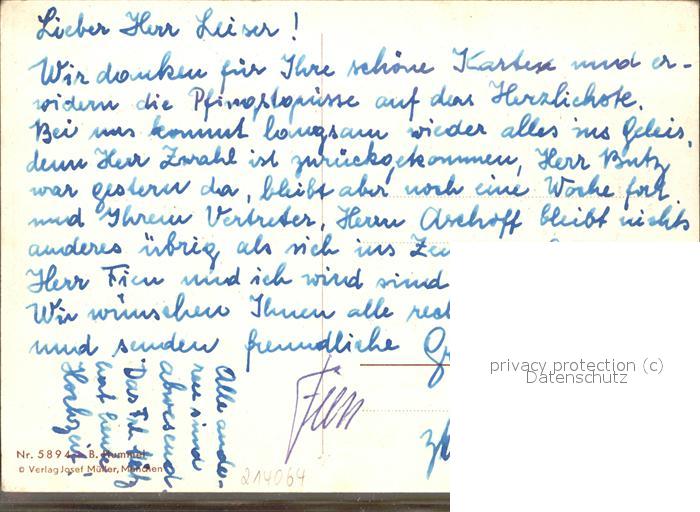 Lieber Herr Leiser!
Wir danken für Ihre schöne Karten und er-
widern die Pfingstgrüsse auf das Herzlichste.
Bei uns kommt langsam wieder alles ins Geleis,
denn Herr Zwahl ist zurückgekommen, Herr Butz
war gestern da, bleibt aber noch eine Woche fort
und Ihrem Vertreter, Herrn Aschoff bleibt nichts
anderes übrig als sich ins
Herr Fien und ich wird sind
Wir wünschen Ihnen alle
und senden freundliche
Alle ande-
ren sind
abwesend
Das Frl.
hat heute
Hochzeit!
Fien
privacy protection (c)
Datenschutz
Nr. 5894 B. Hummel
© Verlag Josef Müller, München
214064